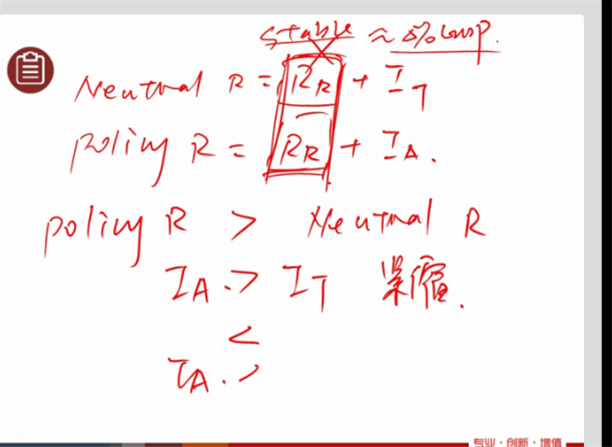 stable ≈ Δ% GDP.
Neutral R = RR + IT
policy R = RR + IA.
policy R > Neutral R
IA. > IT 紧缩.
<
IA. >
专业·创新·增值